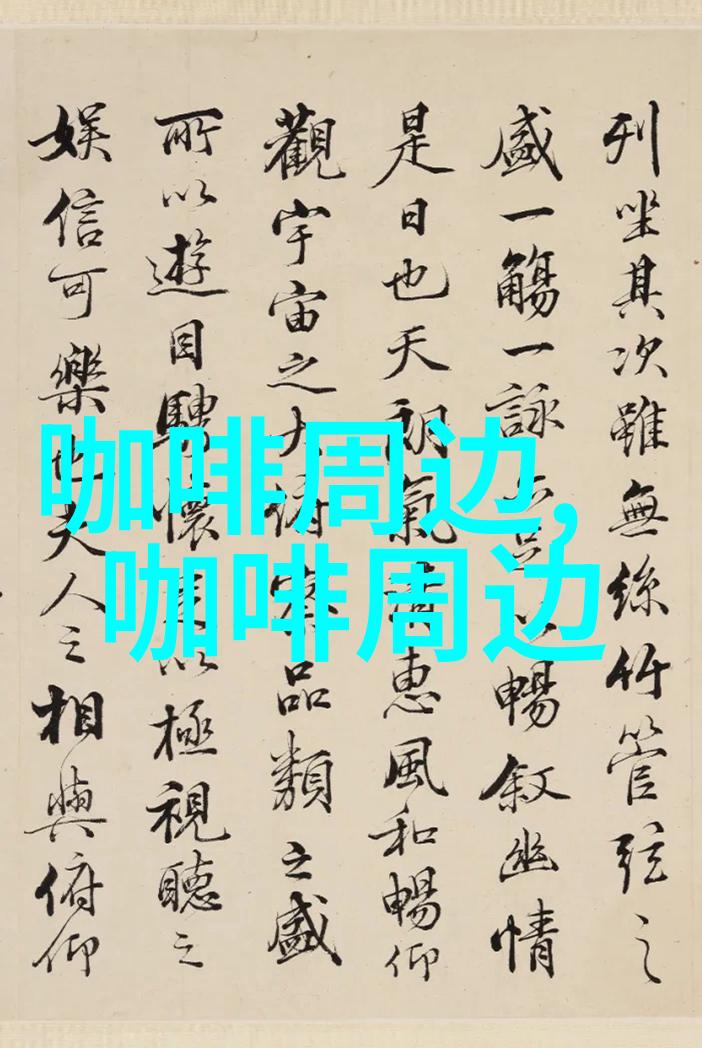 列坐其次雖無絲竹管弦之
盛一觴一詠亦足以暢敘幽情
是日也天朗氣清惠風和暢仰
觀宇宙之大俯察品類之盛
所以遊目騁懷足以極視聽之
娛信可樂也夫人之相與俯仰
咖啡周边,
咖啡周边